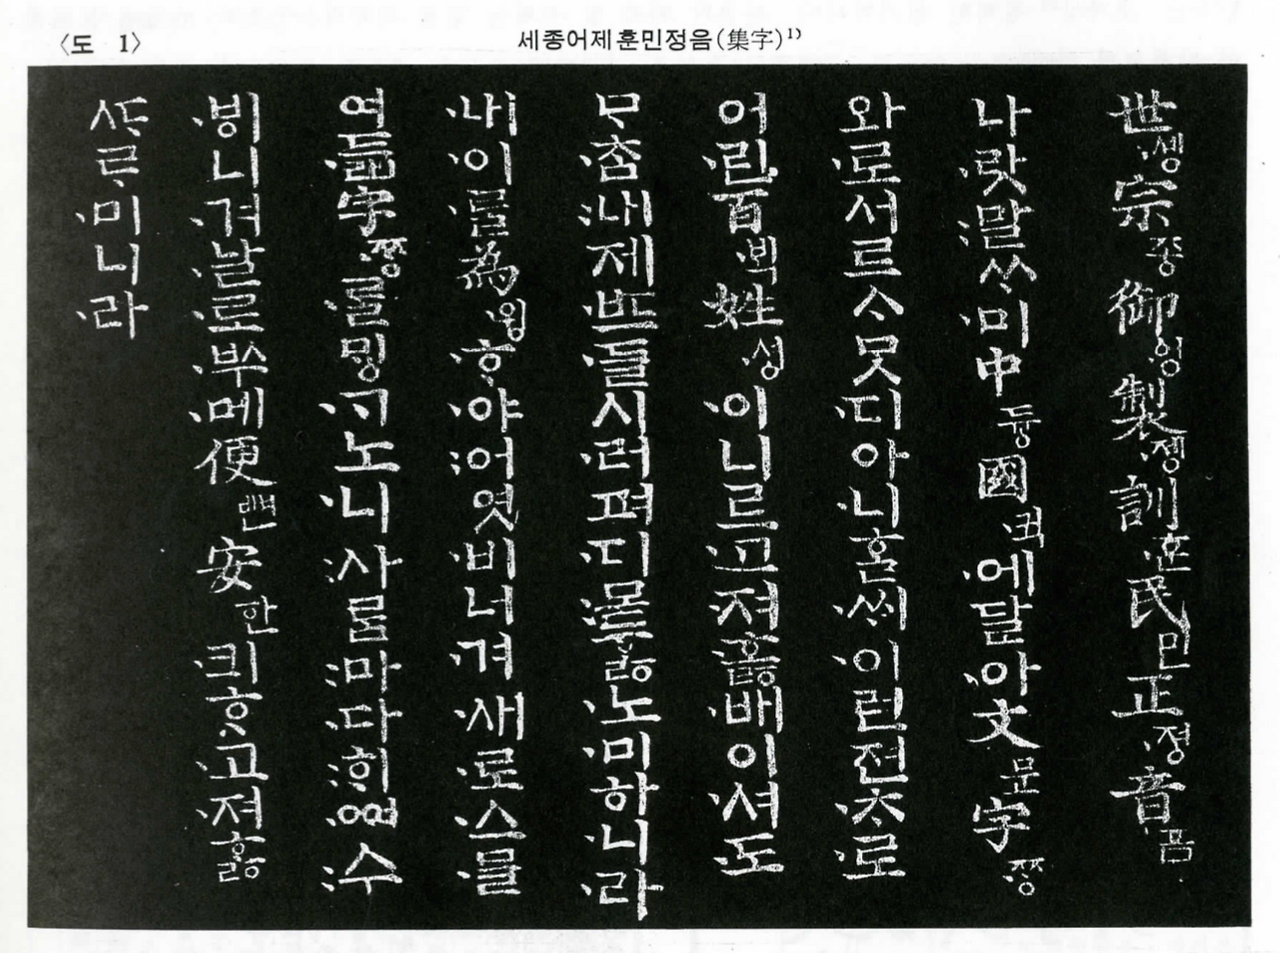 〈도 1〉
세종어제훈민정음(集字)¹⁾
世·솅宗종御·엉製·졩訓·훈民민正·졍音ᅙᅳᆷ
나·랏:말ᄊᆞ·미中듕國·귁·에달·아文문字·ᄍᆞᆼ
와·로서르ᄉᆞᄆᆞᆺ·디아·니ᄒᆞᆯ·ᄊᆡ·이런젼·ᄎᆞ·로
어·린百·ᄇᆡᆨ姓·셩·이니르·고·져·호ᇙ·배이·셔·도
ᄆᆞ·ᄎᆞᆷ:내제·ᄠᅳ·들시·러펴·디:몯ᄒᆞᇙ·노·미하·니·라
·내·이·ᄅᆞᆯ為·윙·ᄒᆞ·야:어엿·비너·겨·새·로·스·믈
여·듧字·ᄍᆞᆼ·ᄅᆞᆯᄆᆡᇰ·ᄀᆞ노·니:사ᄅᆞᆷ:마·다:ᄒᆡ·ᅇᅧ:수
·ᄫᅵ니·겨·날·로·ᄡᅮ·메便뼌安ᅙᅡᆫ·킈ᄒᆞ·고·져ᄒᆞᇙ
ᄯᆞᄅᆞ·미니·라